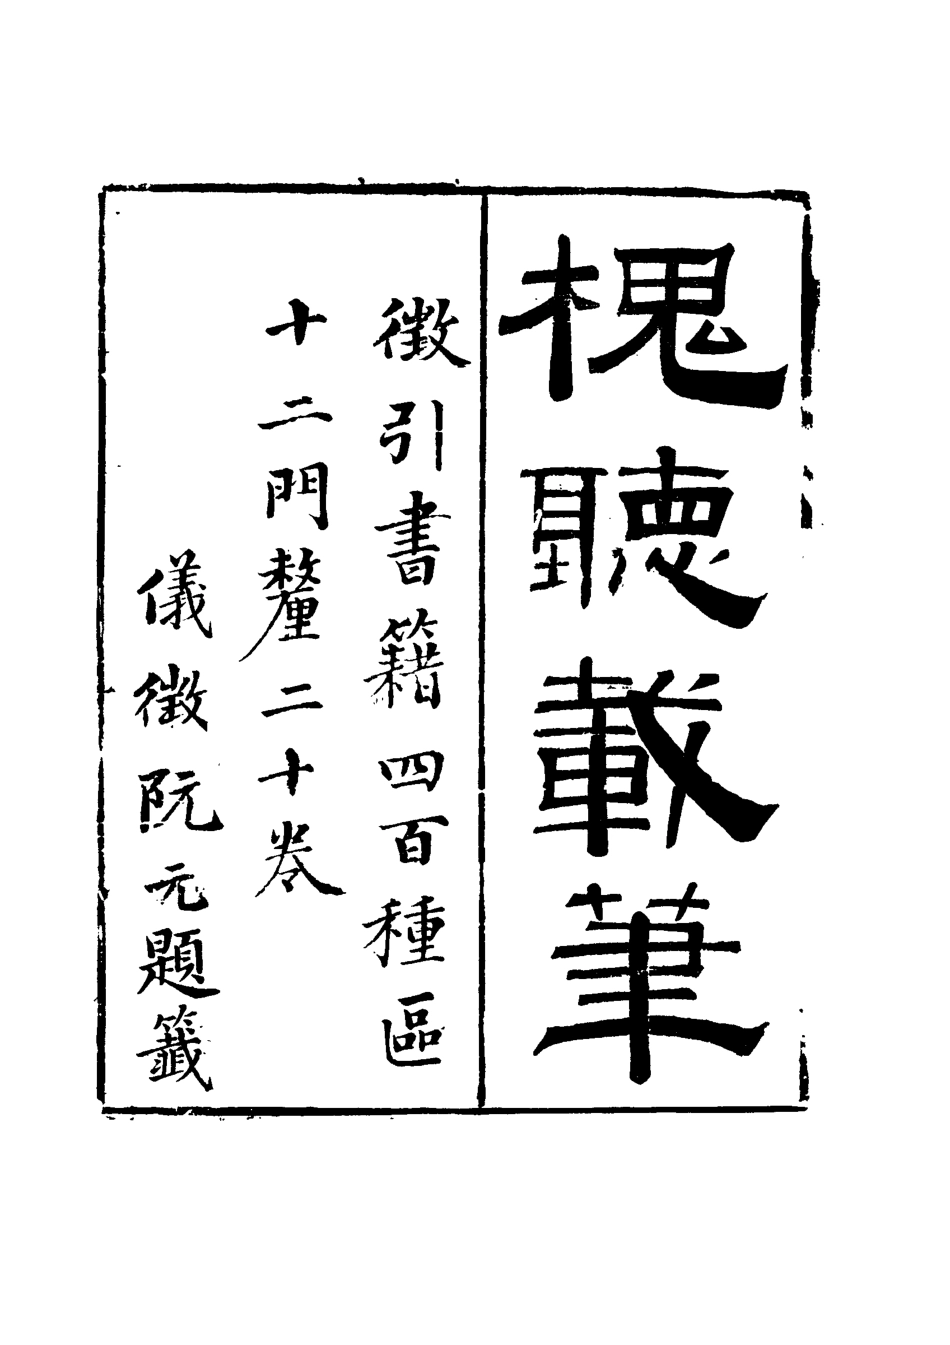 槐聽載筆
徵引書籍四百種區
十二門釐二十卷
儀徵阮元題籤